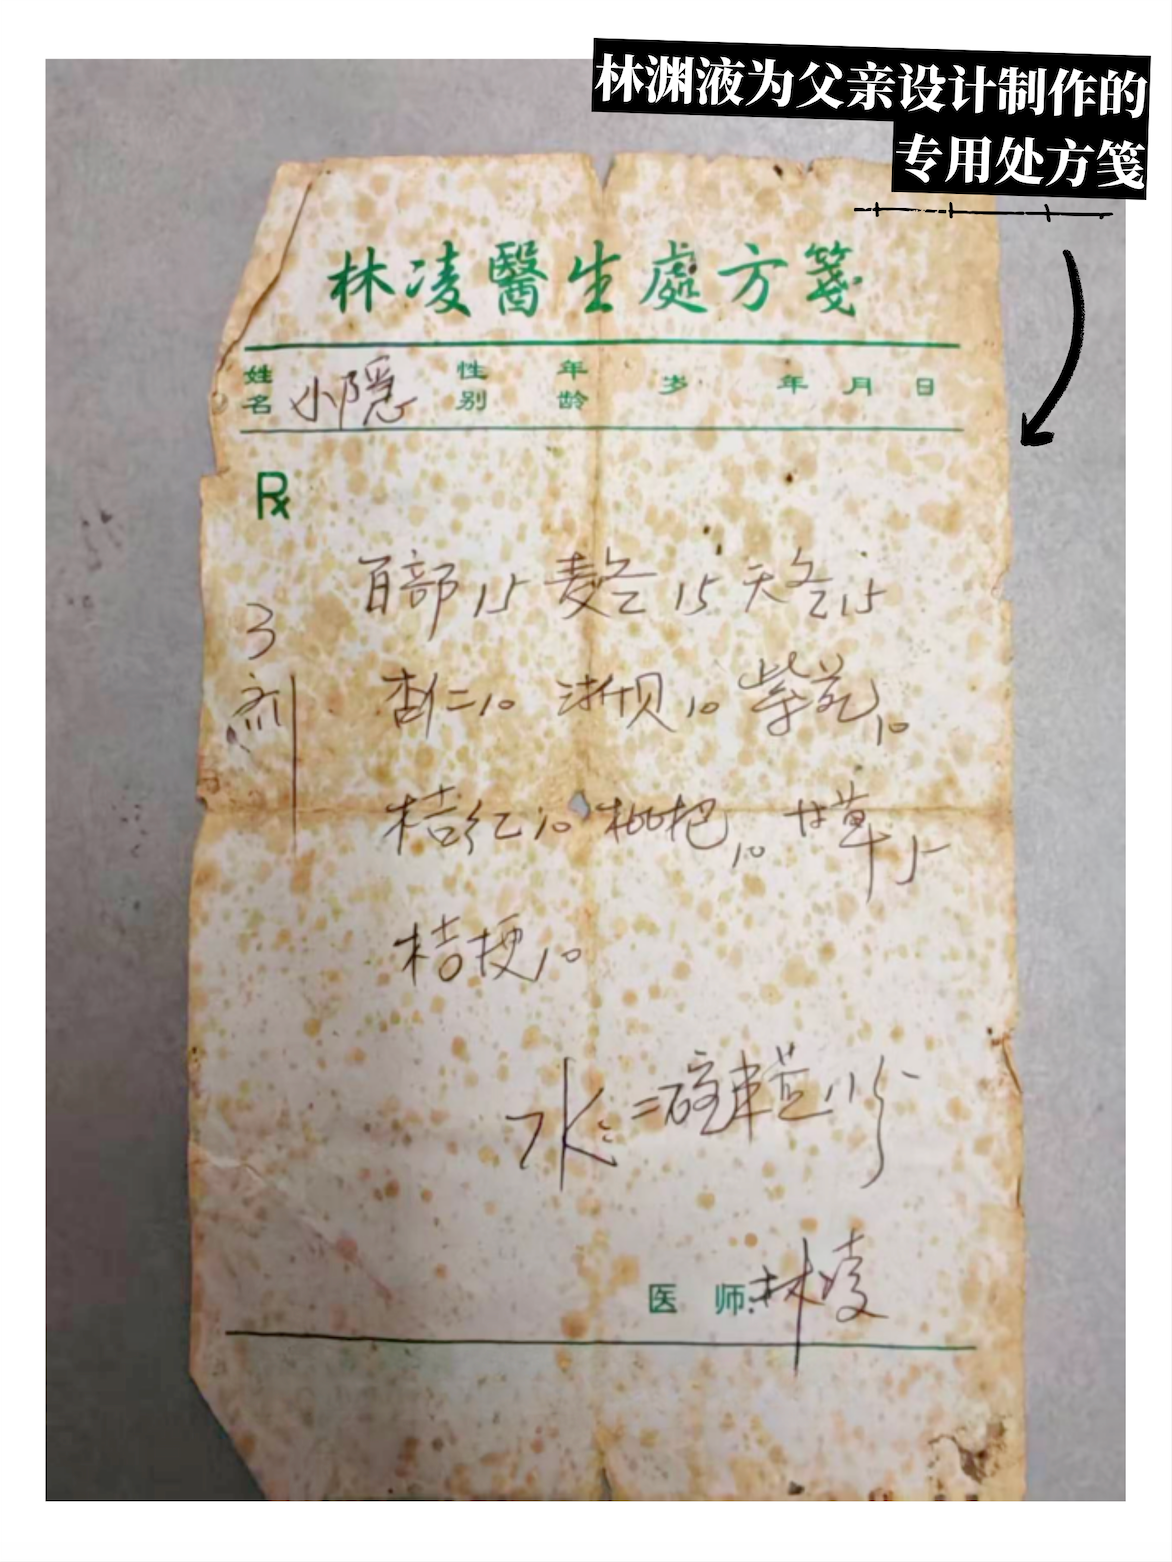 林渊液为父亲设计制作的
专用处方笺
林凌醫生處方箋
姓名 小隱 性别 年龄 岁 年 月 日
Rx
3剂
百部15 麦冬15 天冬15
杏仁10 浙贝10 紫菀10
桔红10 枇杷10 甘草5
桔梗10
水二碗
医 师:林凌